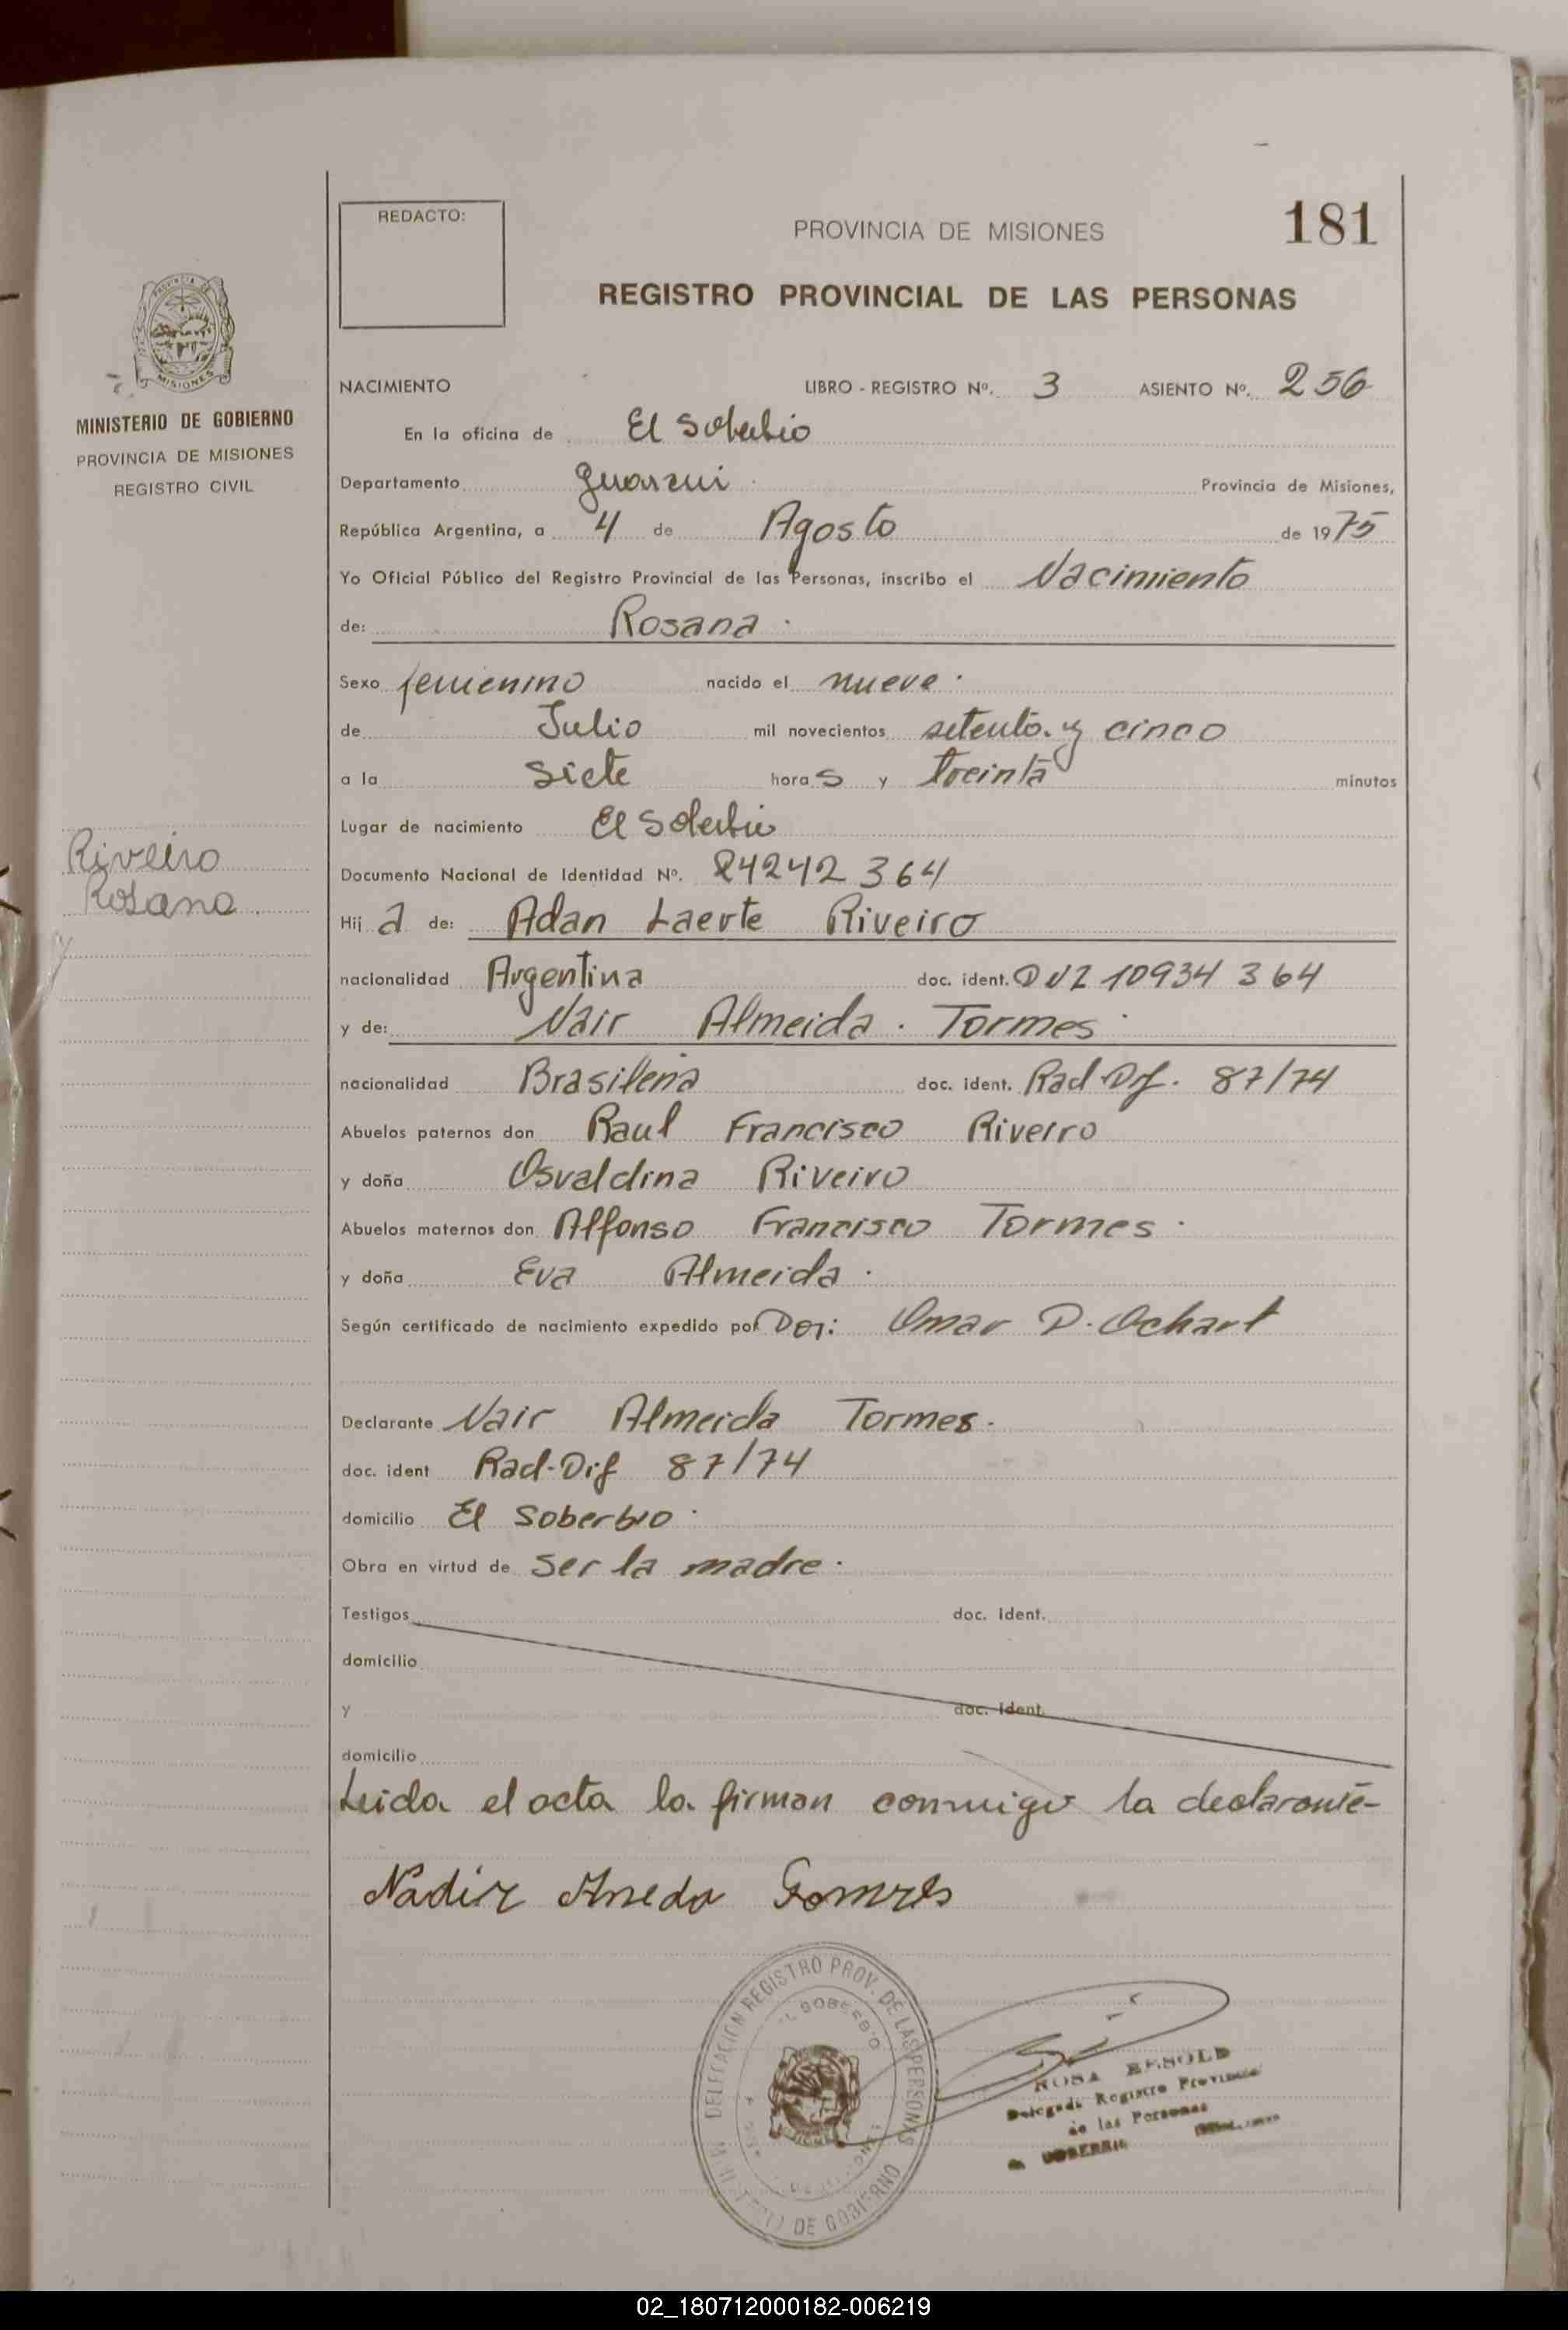 REDACTO:
PROVINCIA DE MISIONES
181
REGISTRO PROVINCIAL DE LAS PERSONAS
MISIONES
MINISTERIO DE GOBIERNO
PROVINCIA DE MISIONES
REGISTRO CIVIL
NACIMIENTO LIBRO - REGISTRO Nº. 3 ASIENTO Nº. 256
En la oficina de El Soberbio
Departamento Guarani Provincia de Misiones,
República Argentina, a 4 de Agosto de 1975
Yo Oficial Público del Registro Provincial de las Personas, inscribo el Nacimiento
de: Rosana
Sexo femenino nacido el nueve
de Julio mil novecientos setenta y cinco
a la siete horas y treinta minutos
Lugar de nacimiento El Soberbio
Documento Nacional de Identidad Nº. 24242 364
Riveiro
Rosana
Hij a de: Adan Laerte Riveiro
nacionalidad Argentina doc. ident. DNI 10934 364
y de: Nair Almeida Tormes
nacionalidad Brasileña doc. ident. Rad-Dif. 87/74
Abuelos paternos don Raul Francisco Riveiro
y doña Osvaldina Riveiro
Abuelos maternos don Alfonso Francisco Tormes
y doña Eva Almeida
Según certificado de nacimiento expedido por Dor: Omar D. Ochart
Declarante Nair Almeida Tormes.
doc. ident Rad-Dif 87/74
domicilio El Soberbio
Obra en virtud de ser la madre
Testigos doc. ident.
domicilio
y doc. ident.
domicilio
Leida el acta la firman conmigo la declarante-
Nadir
DELEGACION REGISTRO PROV. DE LAS PERSONAS
EL SOBERBIO
DE GOBIERNO
ROSA
Delegada Registro Provincial
de las Personas
EL SOBERBIO
02_180712000182-006219